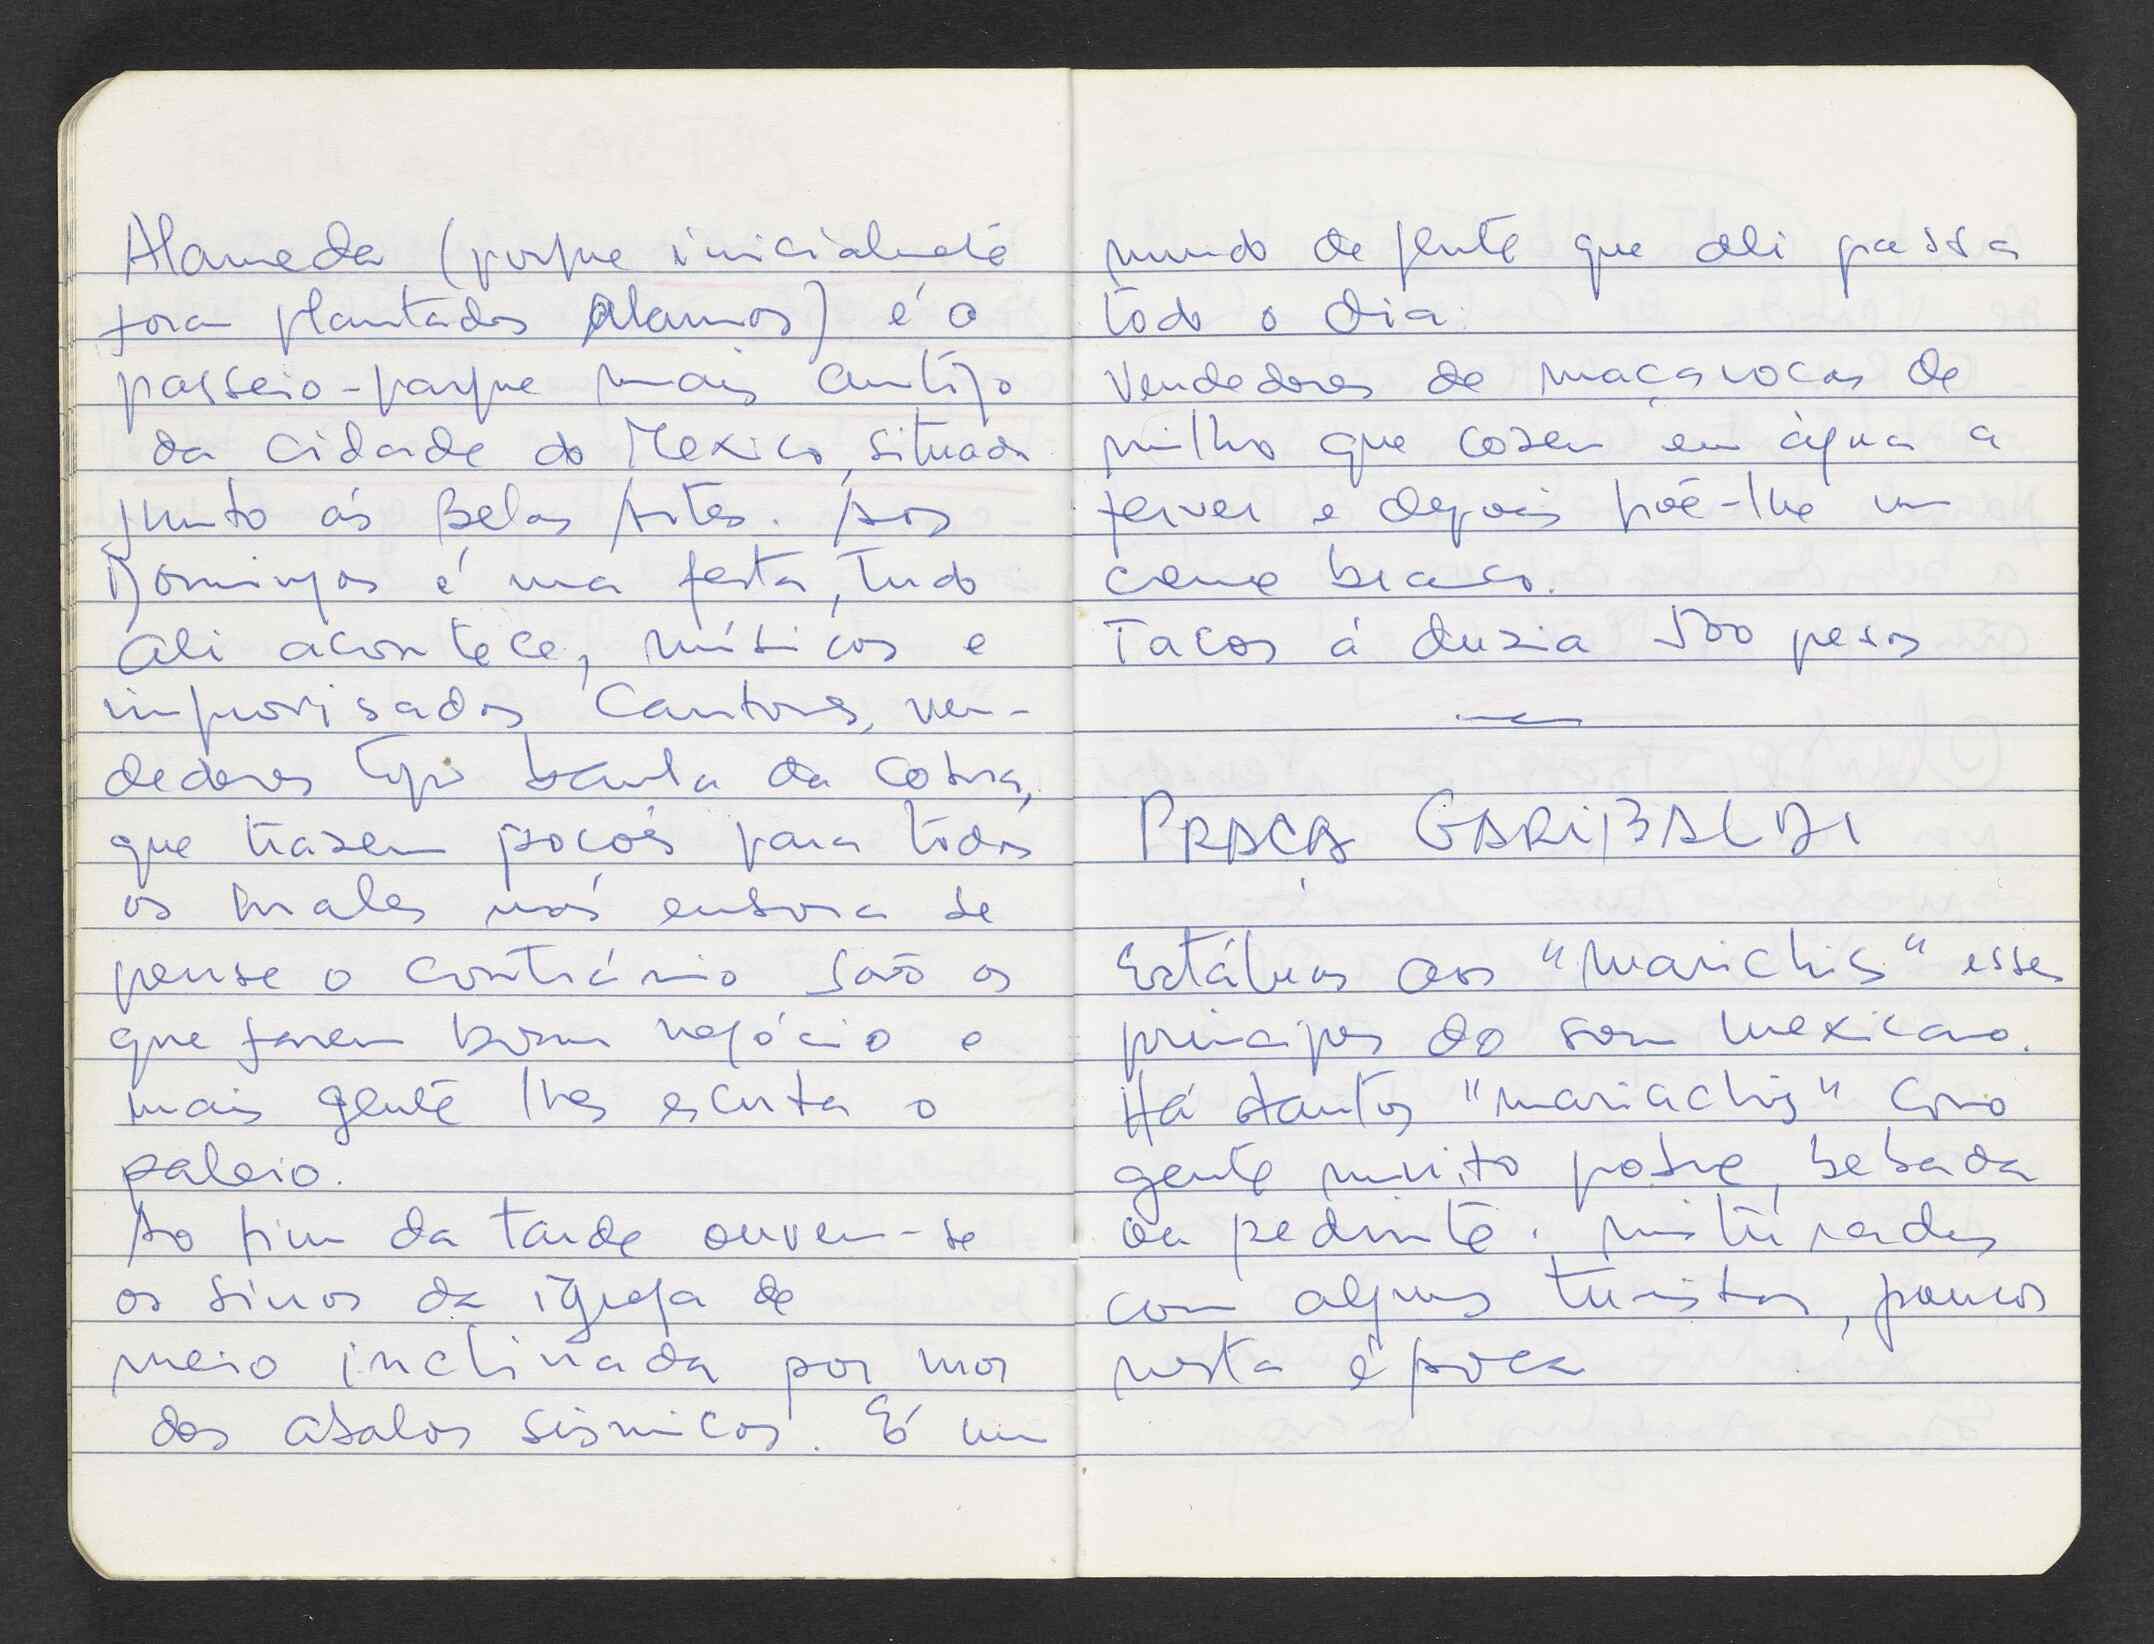 Alameda (porque inicialmete
foram plantados Alamos) é o
passeio-parque mais antigo
da cidade do Mexico, situada
junto ás Belas Artes. Aos
Domingos é uma festa, tudo
ali acontece, músicos e
improvisados cantores, ven-
dedores tipo banha da cobra,
que trazem poções para todos
os males mas embora se
pense o contrário são os
que fazem bom negócio e
mais gente lhes escuta o
paleio.
Ao fim da tarde ouvem-se
os sinos da igreja de
meio inclinada por mor
dos abalos sismicos. É um
mundo de gente que ali passa
todo o dia.
Vendedores de maçarocas de
milho que cozem em àgua a
ferver e depois põe-lhe um
creme branco.
Tacos á duzia 500 pesos
PRAÇA GARIBALDI
Estátuas aos "marichis" esses
principes do som mexicano.
Há tantos "mariachis" como
gente muito pobre, bebada
ou pedinte. misturados
com alguns turistas, poucos
nesta época